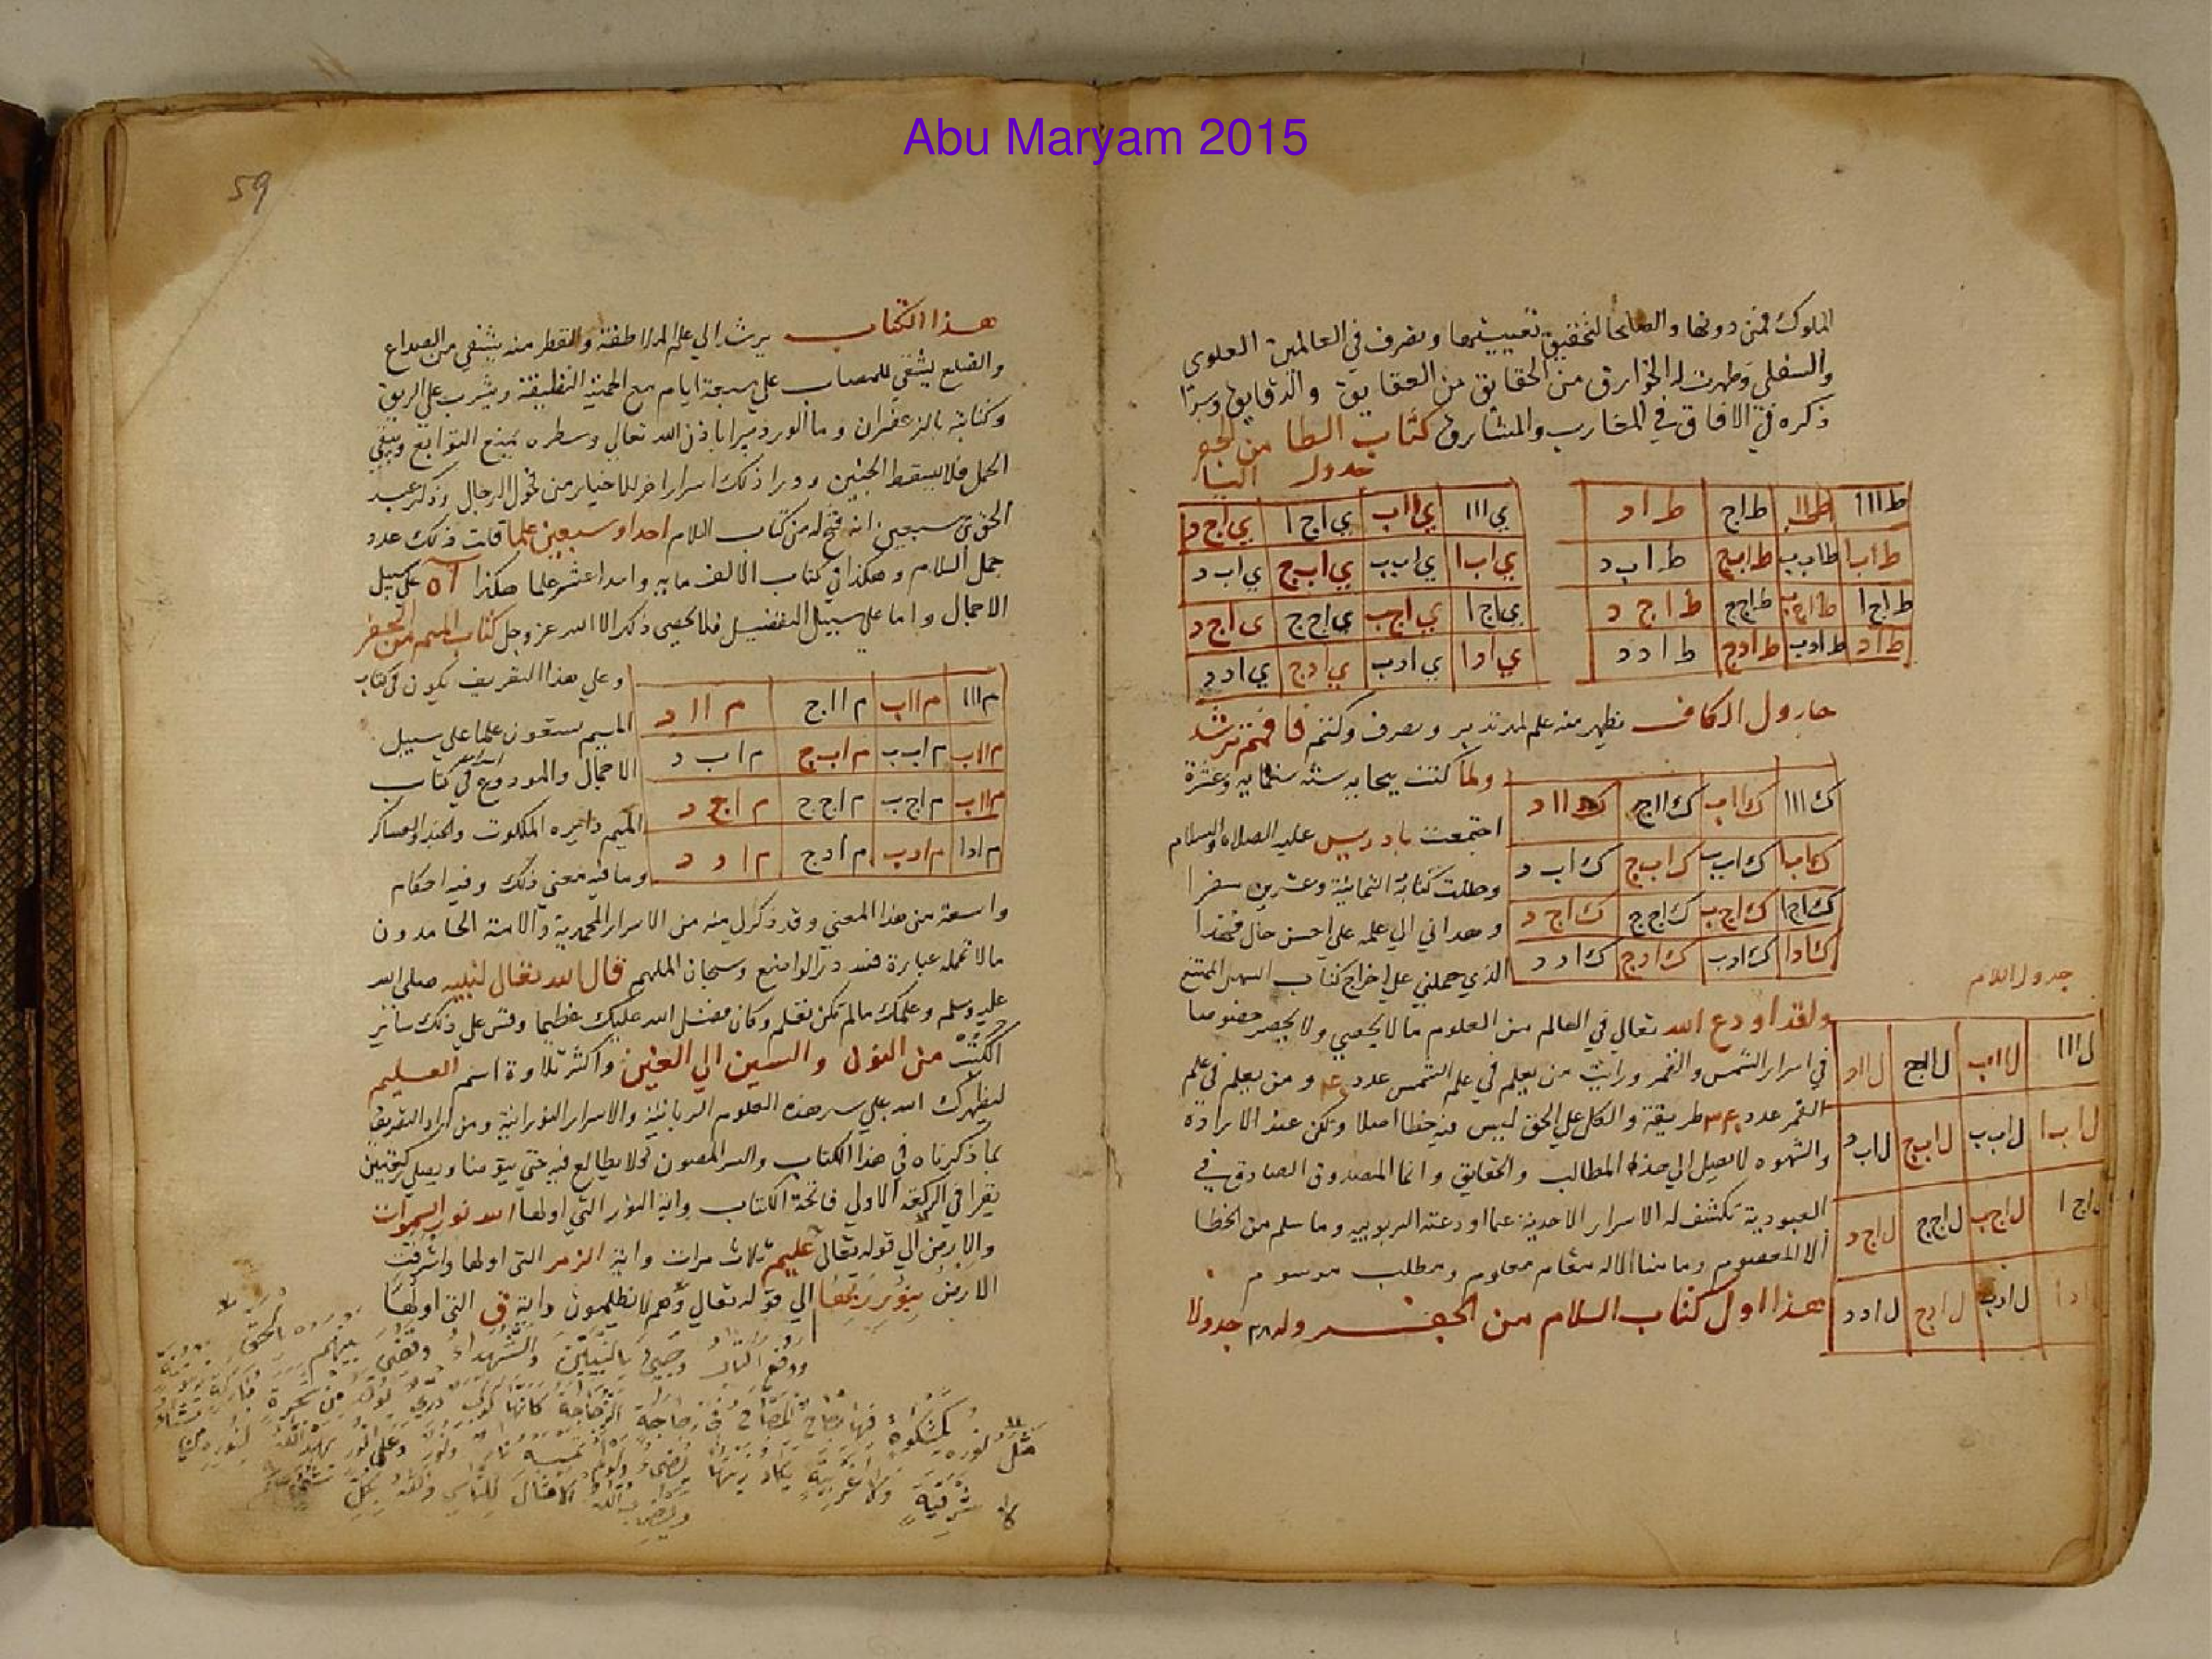 Abu Maryam 2015
الملوك فمن دونها والصلحا لتحقيق تغييبتها وتصرف في العالمين العلوي
والسفلي وظهرت له الخوارق من الحقايق من العقايق والدقايق وسرا
ذكره في الافاق في المغارب والمشارق كتاب الطا من الجفر
جدول اليا
ط ا ا ا ط ا ا ب ط ا ج ط ا د
ط ا ب ا ط ا ب ب ط ا ب ج ط ا ب د
ط ا ج ا ط ا ج ب ط ا ج ج ط ا ج د
ط ا د ط ا د ب ط ا د ج ط ا د د
ي ا ا ا ي ا ا ب ي ا ج ا ي ا ج د
ي ا ب ا ي ا ب ب ي ا ب ج ي ا ب د
ي ا ج ا ي ا ج ب ي ا ج ج ي ا ج د
ي ا د ا ي ا د ب ي ا د ج ي ا د د
الكاف يظهر منه علم وتصرف فافهم ترشد
ك ا ا ا ك ا ا ب ك ا ا ج ك ا ا د
ك ا ب ا ك ا ب ب ك ا ب ج ك ا ب د
ك ا ج ا ك ا ج ب ك ا ج ج ك ا ج د
ك ا د ا ك ا د ب ك ا د ج ك ا د د
ولما كنت ببجايه سنة ستمايه وعشرة
اجتمعت بادريس عليه الصلاة والسلام
وحللت كتابة الثمانية وعشرين سفرا
وهداني الي علمه علي احسن حال فهذا
الذي حملني علي اخراج كتاب السهل الممتنع
ولقد اودع الله تعالي في العالم من العلوم ما لا يحصي ولا يحصر خصوصا
في اسرار الشمس والقمر ورايت من يعلم في علم الشمس عدد ومن يعلم في علم
القمر عدد طريقة والكل علي الحق ليس فيه خطا اصلا ولكن عند الارادة
والشهوه لا يصل الي هذه المطالب والحقايق وانما المصدوق الصادق في
العبودية تكشف له الاسرار الاحدية عما اودعته الربوبيه وما سلم من الخطا
الا المعصوم وما منا الا له مقام معلوم ومطلب مرسوم
هذا اول كتاب السلام من الجفر وله جدولا
جدول اللام
ل ا ا ا ل ا ا ب ل ا ا ج ل ا ا د
ل ا ب ا ل ا ب ب ل ا ب ج ل ا ب د
ل ا ج ا ل ا ج ب ل ا ج ج ل ا ج د
ل ا د ب ل ا د ج ل ا د د
59
هذا الكتاب يرشد الي علم والنقط منه يشفي من الصداع
والضلع يشفي للمصاب علي سبعة ايام مع الحمية النظيفة ويشرب علي الريق
وكتابته بالزعفران وما الورد يبرا باذن الله تعالي وسطره يمنع التوابع ويبقي
الحمل فلا يسقط الجنين وورا ذلك اسرار اخر للاخيار من فحول الرجال وذكر عبد
الحق بن سبعين انه فتح له من كتاب اللام احدا وسبعين علما قلت ذلك عدد
جمل السلام وهكذا في كتاب الالف مايه واحدا عشر علما هكذا علي سبيل
الاجمال واما علي سبيل التفضيل فلا يحصي ذلك الا الله عز وجل كتاب الميم من الجفر
م ا ا ا م ا ا ب م ا ا ج م ا ا د
م ا ا ب م ا ب ب م ا ب ج م ا ب د
م ا ا ب م ا ج ب م ا ج ج م ا ج د
م ا د ا م ا د ب م ا د ج م ا د د
وعلي هذا التعريف يكون في كتاب
الميم ستعون علما علي سبيل
الاجمال والمودوع في كتاب
الميم دايره الملكوت والجند والعساكر
وما فيه معني ذلك وفيه احكام
واسعة من هذا المعني وقد ذكر لي منه من الاسرار المحمدية والامنة الحامدون
مالا تحمله عبارة فلله در الواضع وسبحان الملهم قال الله تعالي لنبيه صلي الله
عليه وسلم وعلمك ما لم تكن تعلم وكان فضل الله عليك عظيما وقس علي ذلك سائر
الكتب من النون والسين الي العين واكثر تلاوة اسم العليم
ليظهرك الله علي سر هذه العلوم الربانية والاسرار النورانية ومن اراد التعريف
بما ذكرناه في هذا الكتاب والسر المصون فلا يطالع فيه حتي يتوضا ويصلي ركعتين
يقرا في الركعة الاولي فاتحة الكتاب واية النور التي اولها الله نور السموات
والارض الي قوله تعالي عليم ثلاث مرات واية الزمر التي اولها واشرقت
الارض بنور ربها الي قوله تعالي وهم لا يظلمون واية ق التي اولها
ووضع الكتاب وجيء بالنبيين والشهداء وقضي بينهم بالحق
مثل نوره كمشكوة فيها مصباح المصباح في زجاجة الزجاجة كانها كوكب دري يوقد من شجرة مباركة زيتونة
لا شرقية ولا غربية يكاد زيتها يضيء ولو لم تمسسه نار نور علي نور يهدي الله لنوره من يشاء
ويضرب الله الامثال للناس والله بكل شيء عليم